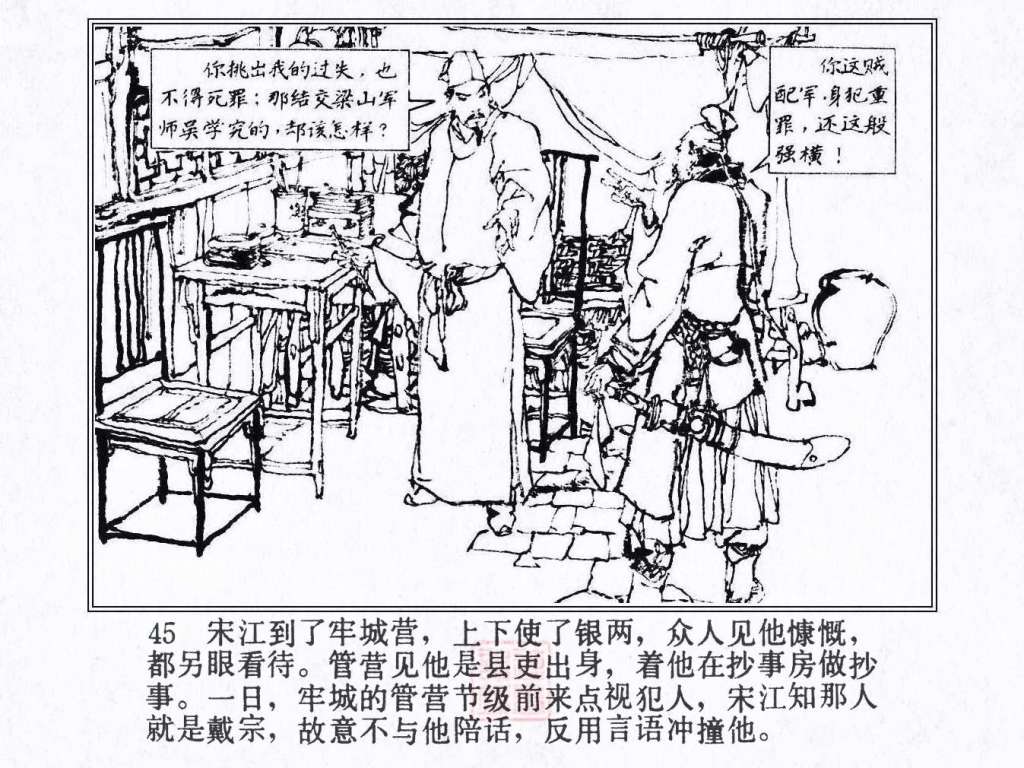 你挑出我的过失，也
不得死罪；那结交梁山军
师吴学究的，却该怎样？
你这贼
配军，身犯重
罪，还这般
强横！
45 宋江到了牢城营，上下使了银两，众人见他慷慨，
都另眼看待。管营见他是县吏出身，着他在抄事房做抄
事。一日，牢城的管营节级前来点视犯人，宋江知那人
就是戴宗，故意不与他陪话，反用言语冲撞他。